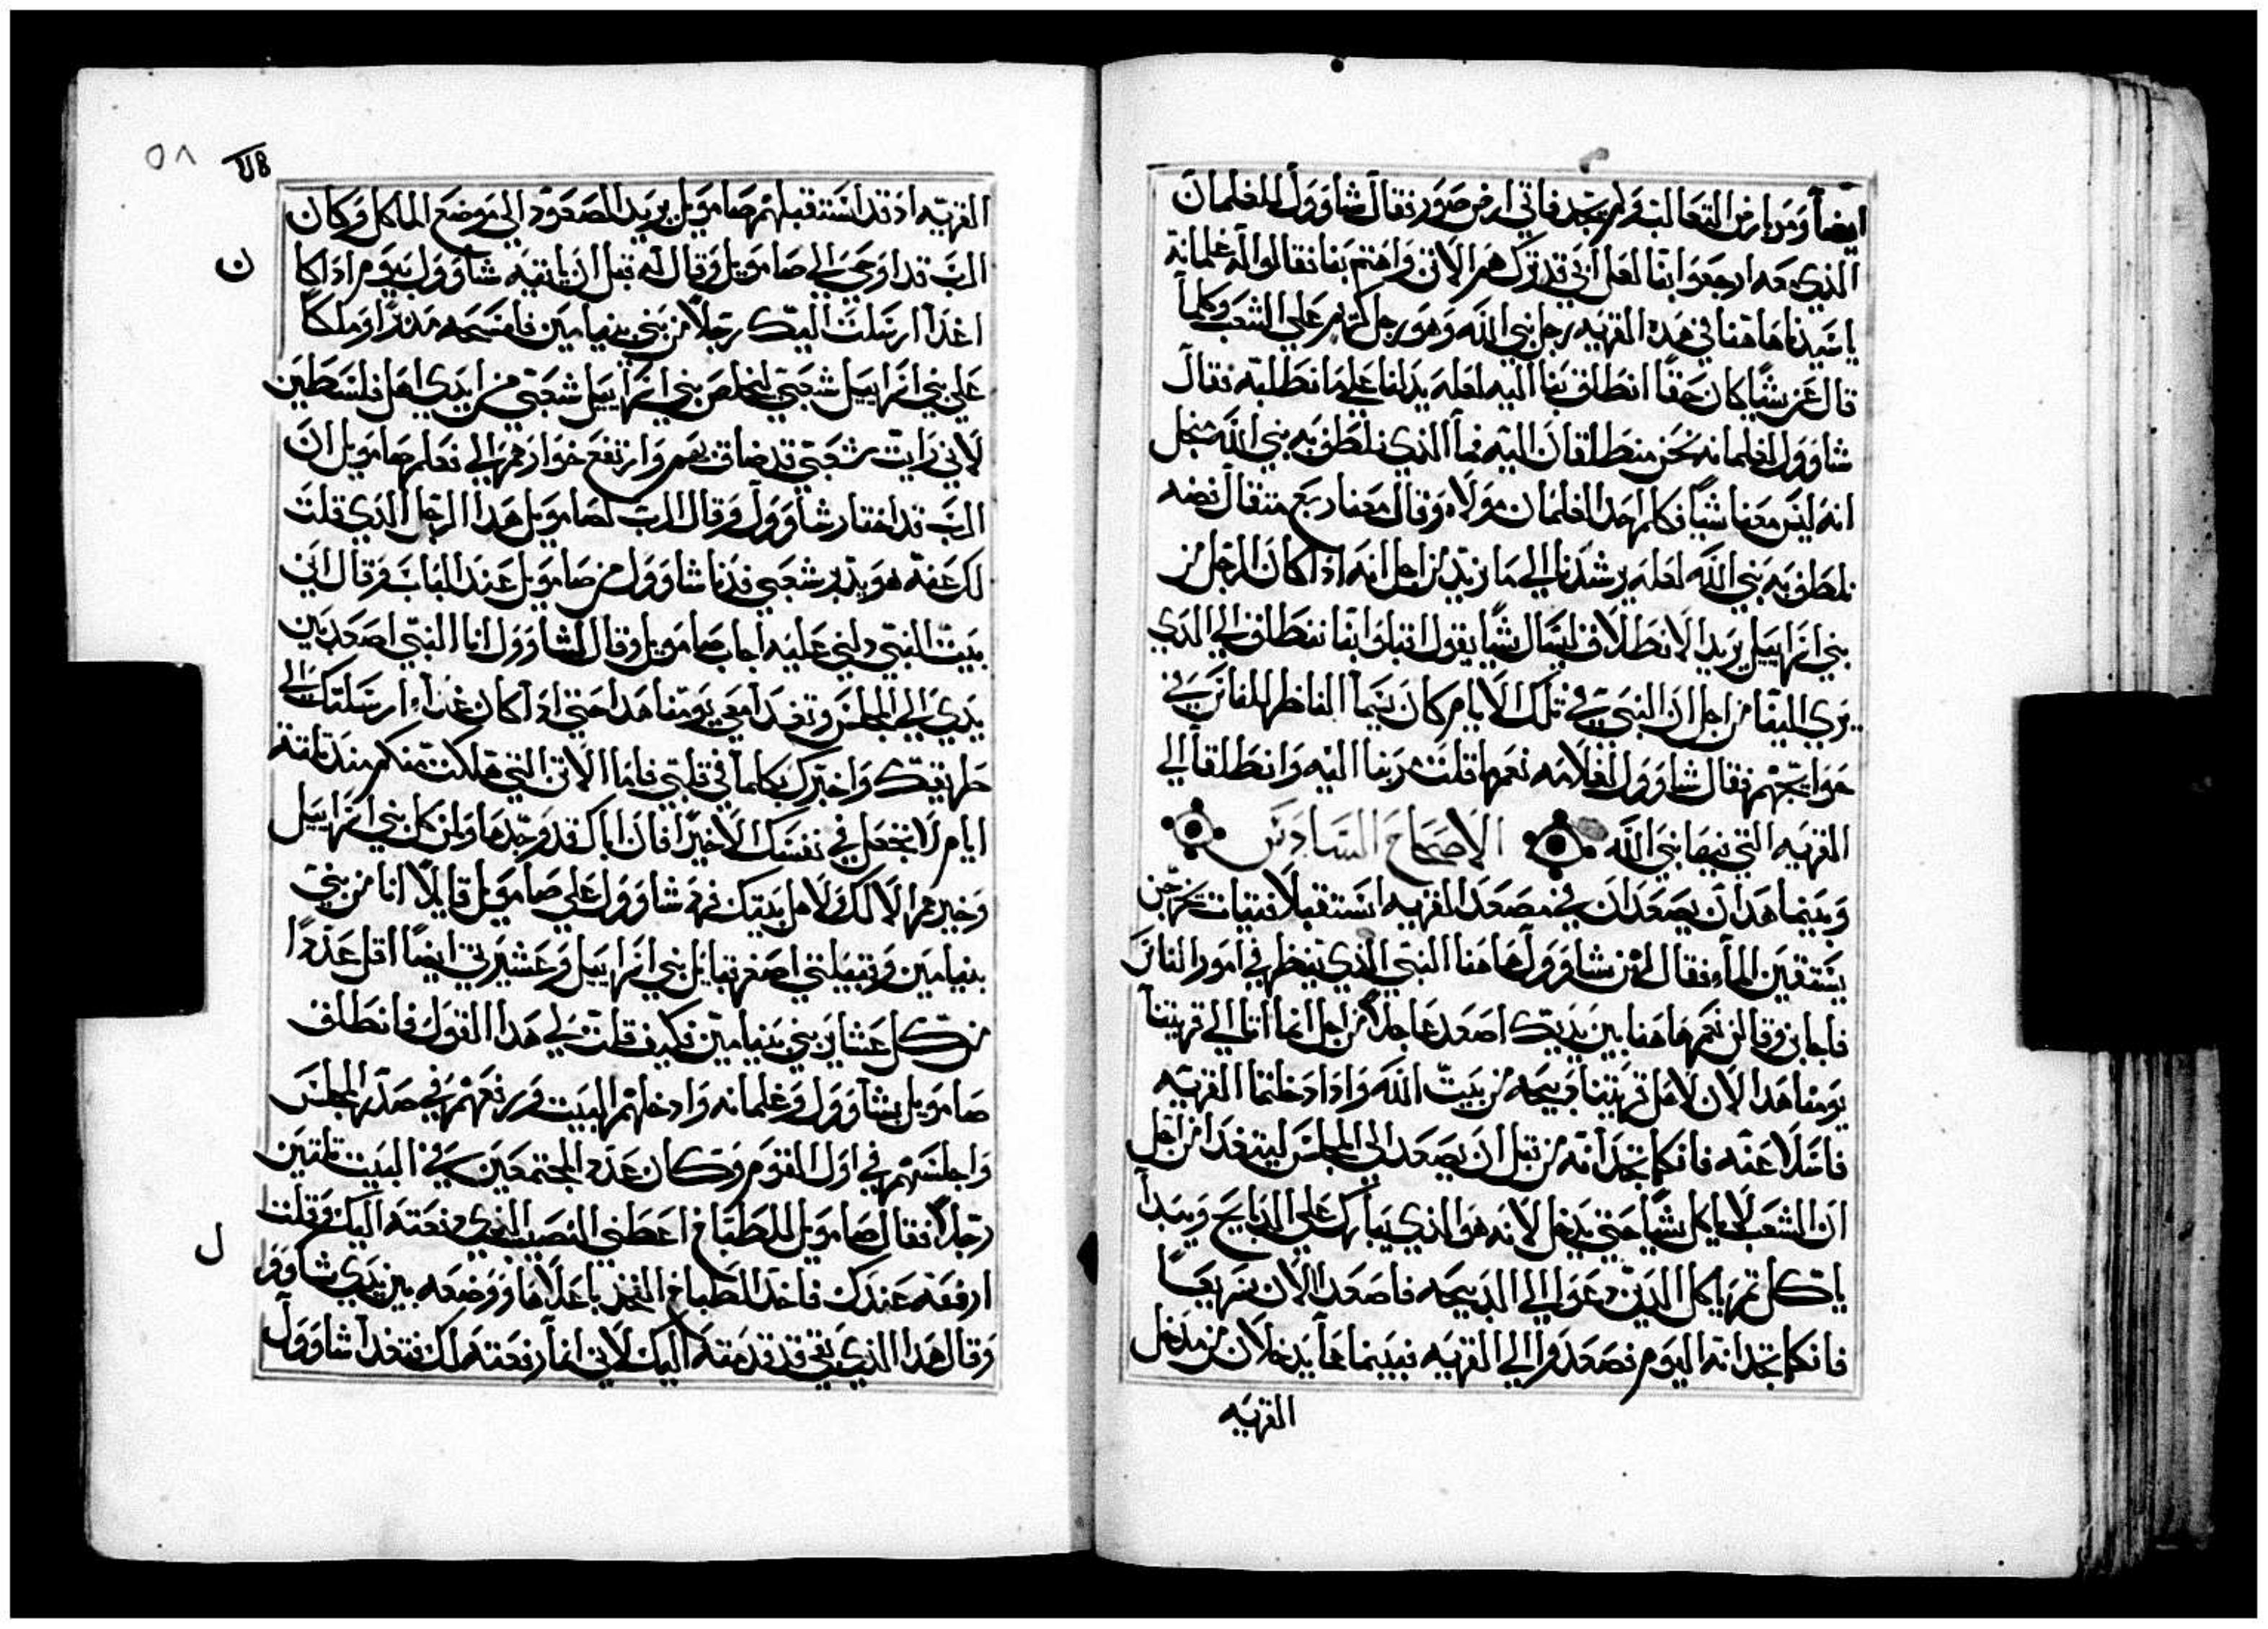 ايضاً ومر بارض الثعالب ولم يجد فاتي ارض صور فقال شاوول للغلمان
الذي معه ارجعوا بنا لعل ابي قد ترك هم الاتن واهتم بنا فقالوا له غلمانه
يا سيدنا هاهنا في هده القريه رجل نبي الله وهو رجل كريم علي الشعب وكلما
قال عن شيا كان حقاً انطلق بنا اليه لعله يدلنا علي ما نطلبه فقال
شاوول لغلمانه نحن منطلقان اليه فما الذي نلطف به نبي الله من اجل
انه ليس معنا شيا فكلم احد الغلمان مولاه وقال معنا ربع متقال فضه
نلطف به نبي الله لعله يرشدنا الي ما نريد من اجل انه اذا كان الرجل من
بني اسراييل يريد الانطلاق ليسال شيا يقول اقبلوا بنا ننطلق الي الذي
يري اليقا من اجل ان النبي في تلك الايام كان يسما الناظر للناس في
حوايجهم فقال شاوول لغلامه نعما قلت مر بنا اليه وانطلقا الي
القريه التي فيها نبي الله الاصحاح السادس
وبينما هدان يصعدان في مصعد القريه استقبلا فتيات يخرجن
يستقين الماء فقال لهن شاوول هاهنا النبي الذي ينظر في امور الناس
فاجابن وقالن نعم هاهنا بين يديك اصعد عاجلاً من اجل انما اتا الي قريتنا
يومنا هدا الان لاهل قريتنا دبيحه من بيت الله واذا دخلتما القريه
فاسلا عنه فانكما تجدانه من قبل ان يصعد الي المجلس ليتغدا من اجل
ان الشعب لا ياكل شيا حتي يدخل لانه هو الذي يبارك علي الدبايح ويبدا
ياكل تم ياكل الدين دعوا الي الدبيحه فاصعدا الان سريعاً
فانكما تجدانه اليوم فصعدوا الي القريه فبينما هما يدخلان من مدخل
القريه
٥٨
القريه اذ قد استقبلهم صامويل يريد الصعود الي موضع الماكل وكان
الرب قد اوحي الي صامويل وقال له قبل ان ياتيه شاوول بيوم اذا كا
ن
غداً ارسلت اليك رجلاً من بني بنيامين فامسحه مدبراً وملكاً
علي بني اسراييل شعبي ليخلص بني اسراييل شعبي من ايدي اهل فلسطين
لاني رايت شعبي قد ضاق بهم وارتفع خوارهم الي فعلم صامويل ان
الرب قد اختار شاوول وقال الرب لصامويل هدا الرجل الذي قلت
لك عنه هو يدبر شعبي فدنا شاوول من صامويل عند الباب وقال اني
بيت النبي دلني عليه اجاب صامويل وقال لشاوول انا النبي اصعد بين
يدي الي المجلس وتغدا معي يومنا هدا حتي اذا كان غداً ارسلتك الي
طريقك واخبرك بكلما في قلبي فاما الاتن التي هلكت منكم مند تلتة
ايام لا تجعل في نفسك الا خيراً فان اباك قد وجدها ولمن كل بني اسراييل
وخيرهم الا لك ولاهل بيتك فرد شاوول علي صامويل قايلاً انا من بني
بنيامين وقبيلتي اصغر قبايل بني اسراييل وعشيرتي ايضاً اقل عدداً
من كل عشاير بني بنيامين فكيف قلت لي هدا القول فانطلق
صامويل بشاوول وغلمانه وادخلهم البيت ورفعهم في صدر المجلس
واجلسهم في اول القوم وكان عدد المجتمعين في البيت تلتين
رجلاً فقال صامويل للطباخ اعطني النصيب الذي دفعته اليك وقلت
ل
ارفعه عندك فاخد الطباخ الفخد باعلاها ووضعه بين يدي شاوو
وقال هدا الذي بقي قد قدمته اليك لاني انما رفعته لك فتغدا شاوول